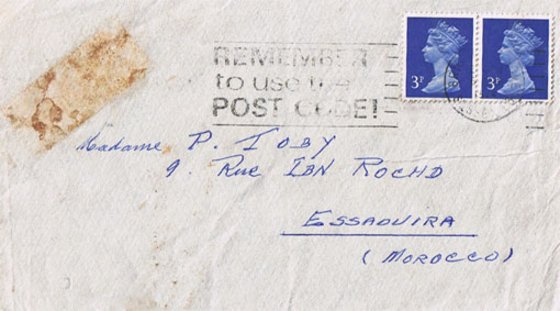 REMEMBER
to use the
POST CODE!
3P 3P
Madame P. TOBY
9. Rue IBN ROCHD
ESSAOUIRA
(MOROCCO)